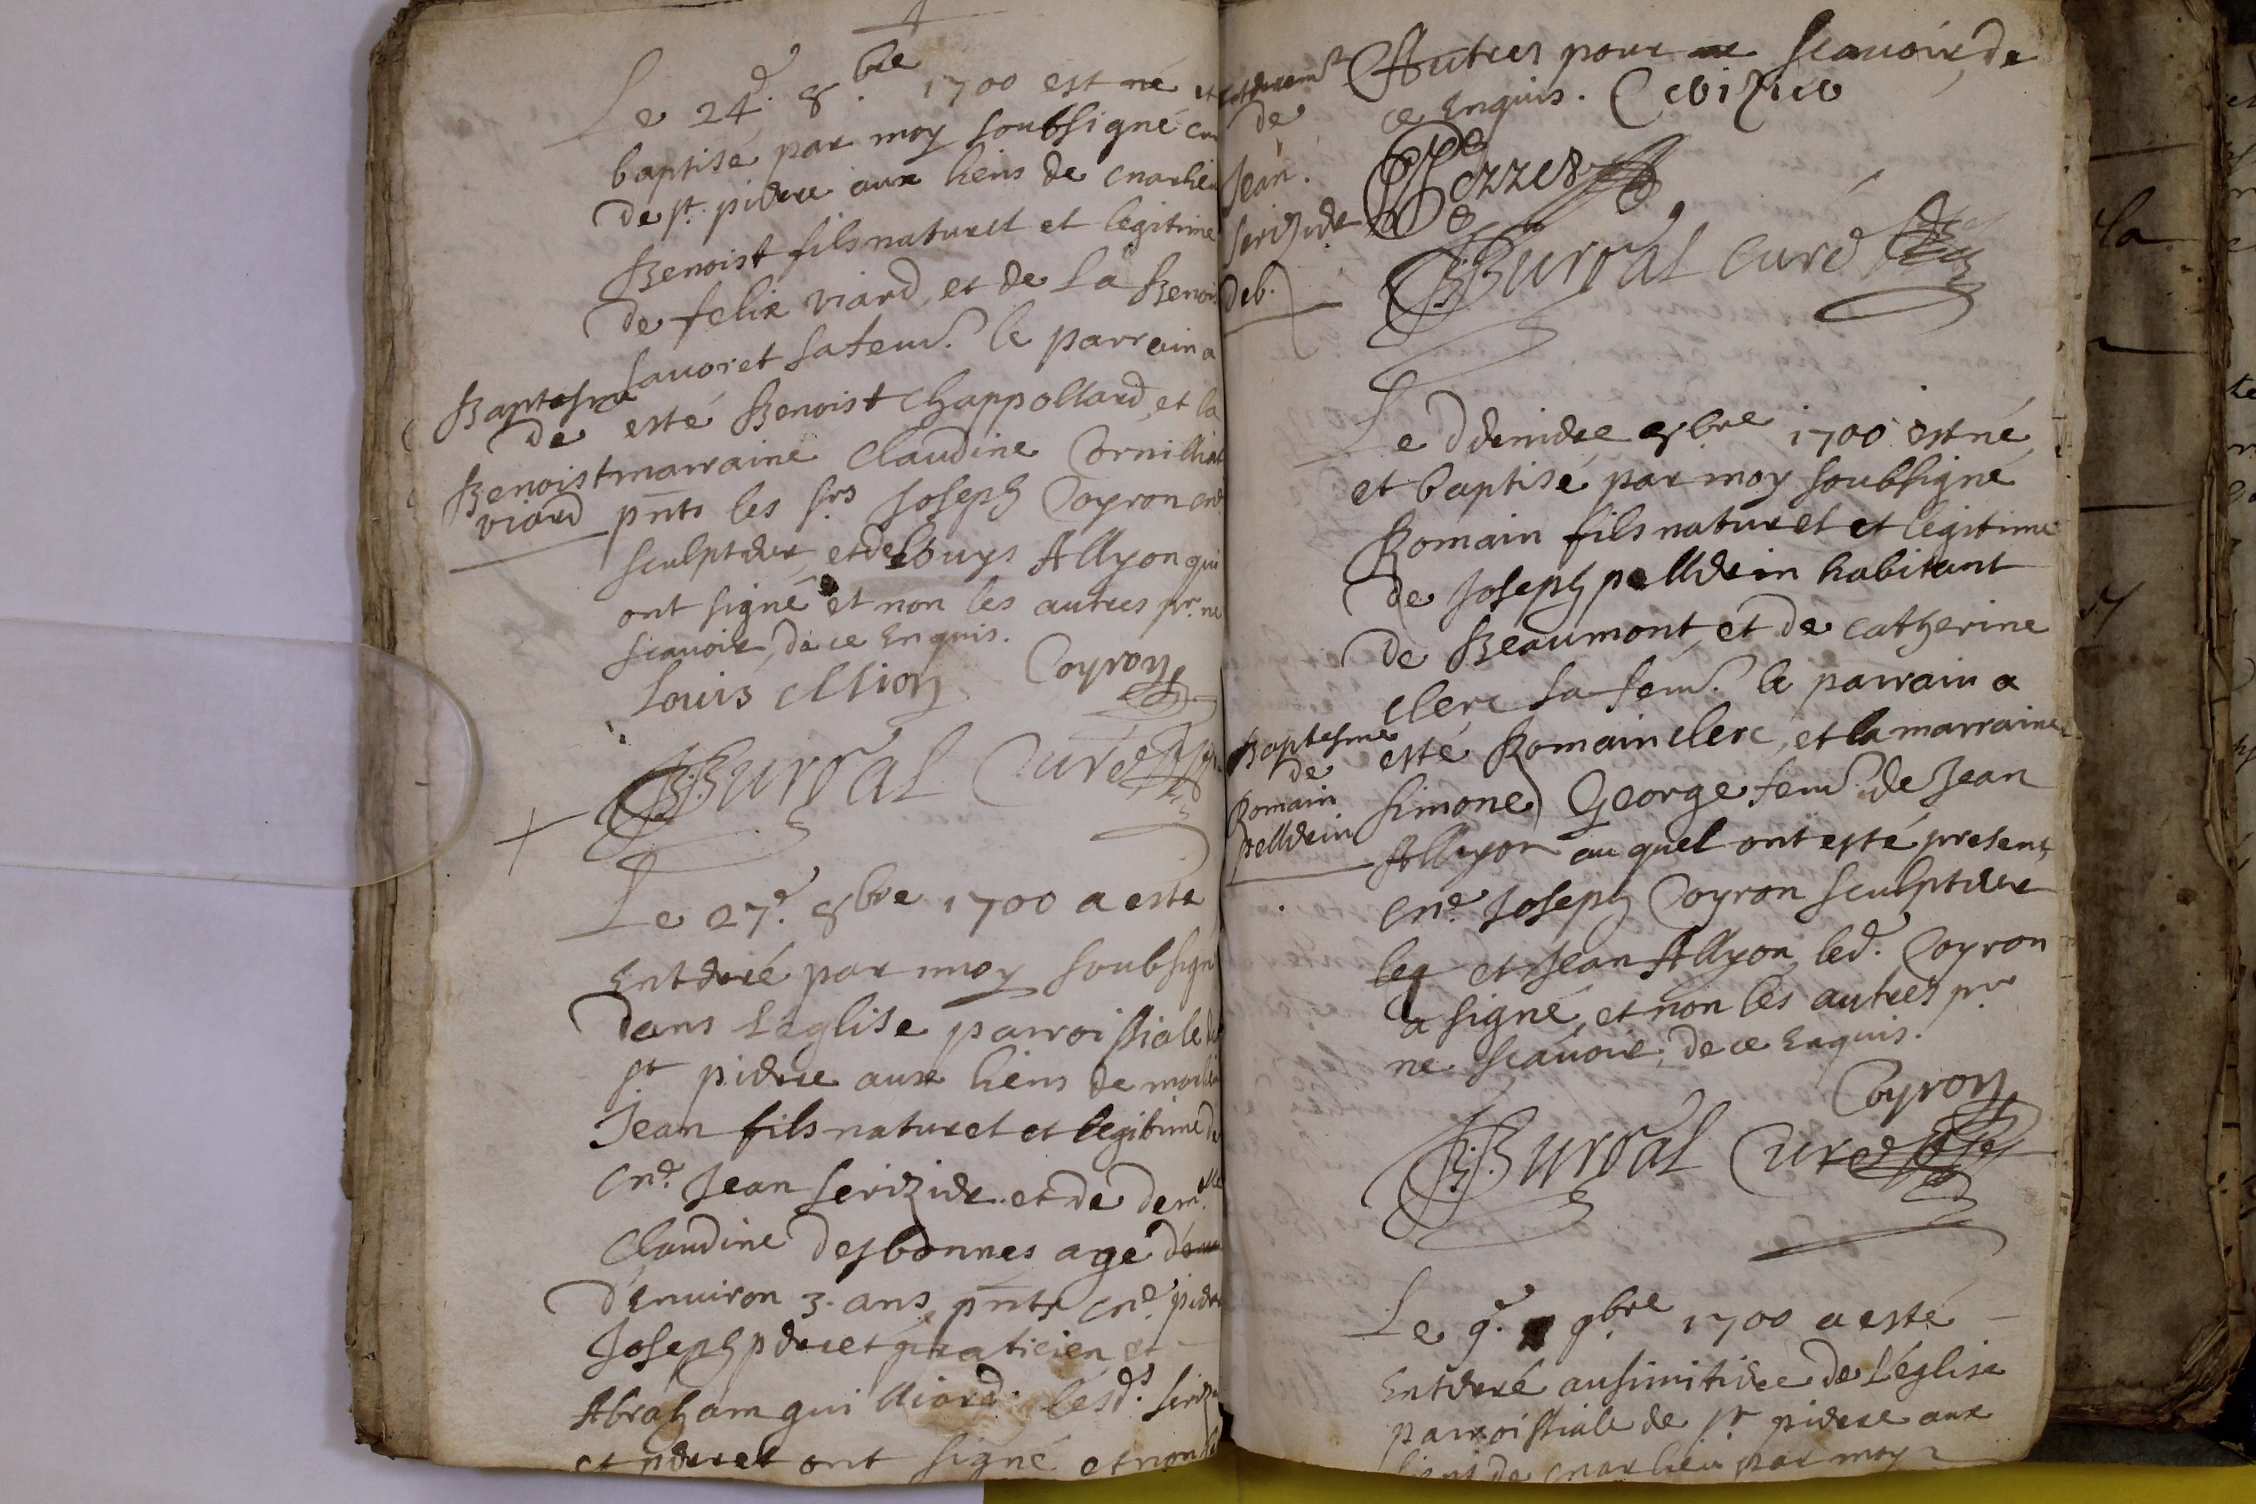 Le 24.e 8.bre 1700 est né et
baptisé par moy soubsigné cu
de st. pierre aux liens de cnarlieu
Benoist fils naturel et legitime
de felix viard et de La Benoi
favoret sa fem.e le parrain a
esté Benoist Chappollard et la
marraine Claudine Cornillia
pnts les srs Joseph Coyron cne
sculpteur, et de Louys Allyon qui
ont signé et non les autres pr. ne
scavoir, de ce Enquis.
Louis Allion Coyron
BBurdal Curé
Baptesme
de
Benoist
viard
Le 27.e 8bre 1700 a esté
Enterré par moy soubsigné
dans L'eglise parroissiale de
st pierre aux liens de
Jean fils naturel et legitime de
cne. Jean serizier et de dem.lle
Claudine desbonnes agé
d'Environ 3. ans, pnts cne. pierre
Joseph perret praticien et
Abraham guilliard. lesd.s seriz
et perret ont signé et non
Autres pour scavoir, de
ce Enquis. Cerizier
Pezzer
BBurdal curé
Enterrem.t
de
Jean.
serizier
deb.
Le Dernier 8bre 1700 est né
et baptisé par moy soubsigné
Romain fils naturel et legitime
de Joseph pellerin habitant
de Beaumont, et de catherine
clerc sa fem.e le parrain a
esté Romain clerc, et la marraine
simone George fem.e de Jean
Allyon auquel ont esté present
cne. Joseph Coyron sculpteur
leq et Jean Allyon, led. Coyron
a signé, et non les autres pr
ne scavoir, de ce Enquis.
Coyron
BBurdal Curé
Baptesme
de
Romain
pellerin
Le 9.e 9bre 1700 a esté
Enterré au simitiere de L'église
parroissiale de st pierre aux
liens de cnarlieu par moy